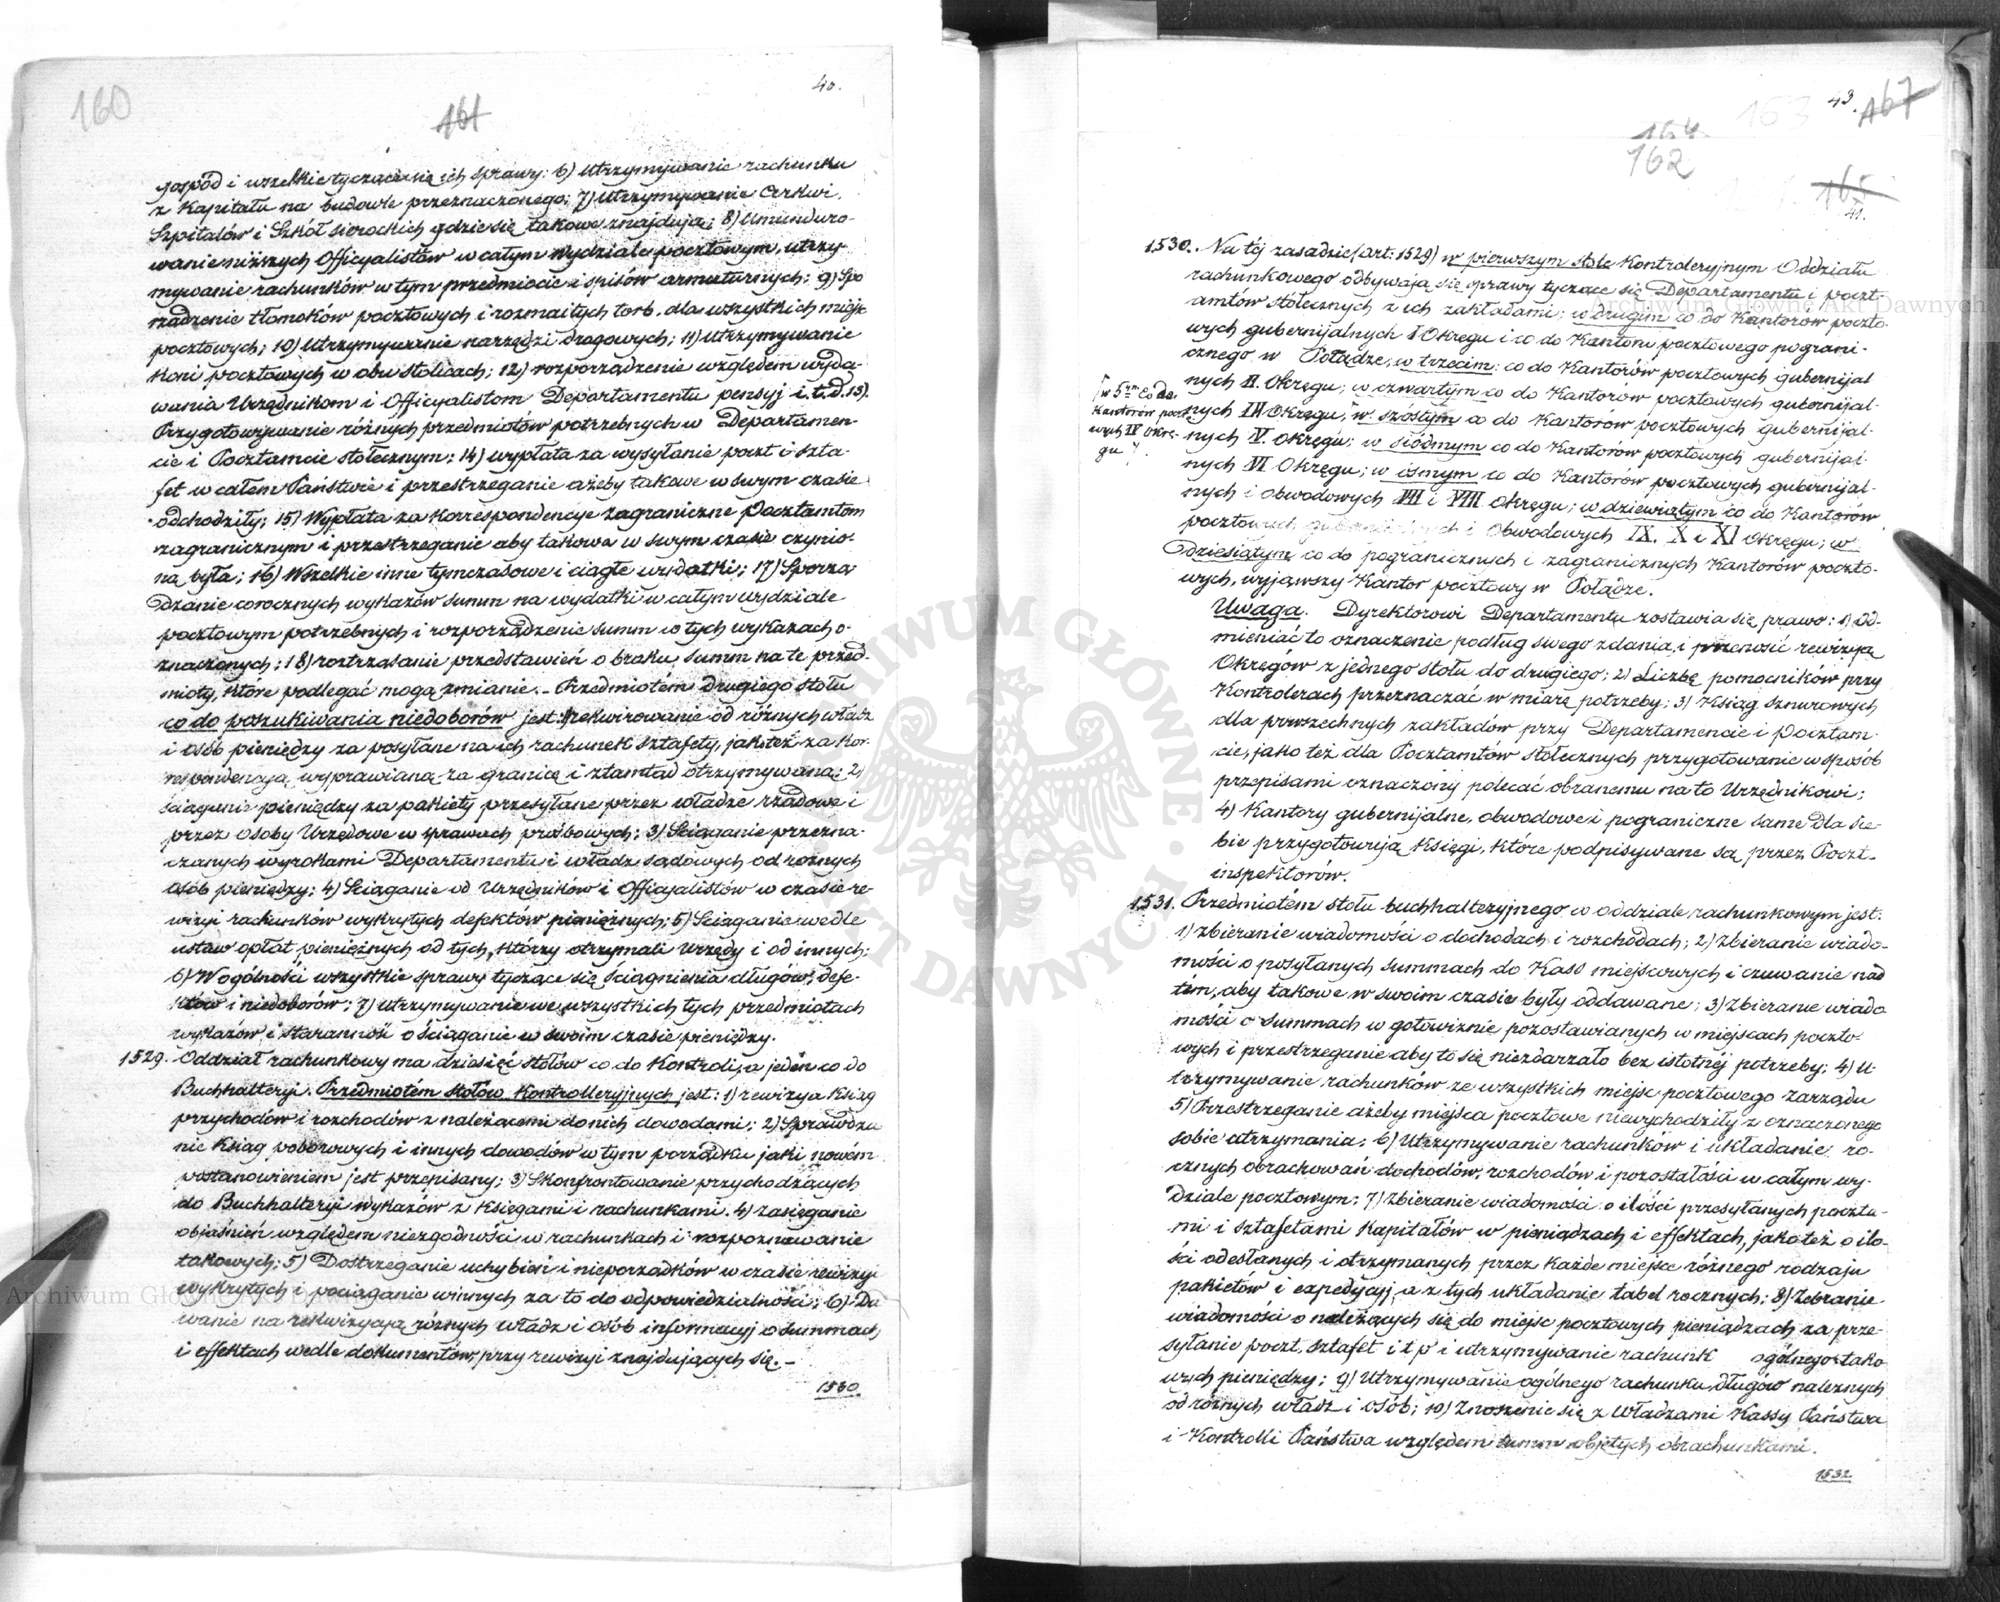 160
161
40.
gospód i wszelkie tyczące się ich sprawy; 6) Utrzymywanie rachunku
z Kapitału na budowle przeznaczonego; 7) Utrzymywanie Cerkwi,
Szpitalów i Szkół sierockich gdzie się takowe znajdują; 8) Umunduro-
wanie niższych Officyalistów w całym wydziale pocztowym, utrzy-
mywanie rachunków w tym przedmiocie i spisów armaturnych; 9) Spo
rządzenie tłomoków pocztowych i rozmaitych torb, dla wszystkich miejsc
pocztowych; 10) Utrzymywanie narzędzi drogowych; 11) Utrzymywanie
Koni pocztowych w obu stolicach; 12) rozporządzenie względem wyda-
wania Urzędnikom i Officyalistom Departamentu pensyj i.t.d. 13).
Przygotowywanie różnych przedmiotów potrzebnych w Departamen-
cie i Pocztamcie stołecznym; 14) wypłata za wysyłanie poczt i szta-
fet w całem Państwie i przestrzeganie ażeby takowe w swym czasie
odchodziły; 15) Wypłata za Korrespondencye zagraniczne Pocztamtom
zagranicznym i przestrzeganie aby takowa w swym czasie czynio-
ną była; 16) Wszelkie inne tymczasowe i ciągłe wydatki; 17) Sporzą-
dzanie corocznych wykazów summ na wydatki w całym wydziale
pocztowym potrzebnych i rozporządzenie summ w tych wykazach o-
znaczonych; 18) roztrząsanie przedstawień o braku summ na te przed-
mioty, które podlegać mogą zmianie. – Przedmiotem drugiego stołu
co do poszukiwania niedoborów jest: rekwirowanie od różnych władz
i osób pieniędzy za posyłane na ich rachunek sztafety, jako też za kor-
respondencyą wyprawianą za granicę i ztamtąd otrzymywaną; 2)
ściąganie pieniędzy za pakiety przesyłane przez władze rządowe i
przez osoby Urzędowe w sprawach prośbowych; 3) Ściąganie przezna-
czanych wyrokami Departamentu i władz sądowych od różnych
osób pieniędzy; 4) Ściąganie od Urzędników i Officyalistów w czasie re-
wizyi rachunków wykrytych defektów pieniężnych; 5) Ściąganie wedle
ustaw opłat pieniężnych od tych, którzy otrzymali urzędy i od innych;
6) W ogólności wszystkie sprawy tyczące się ściągnienia długów, defe-
któw i niedoborów; 7) Utrzymywanie we wszystkich tych przedmiotach
wykazów i staranność o ściąganie w swoim czasie pieniędzy.
1529. Oddział rachunkowy ma dziesięć stołów co do Kontroli, a jeden co do
Buchhalteryi. Przedmiotem stołów Kontrolleryjnych jest: 1) rewizya Ksiąg
przychodów i rozchodów z należącemi do nich dowodami; 2) Sprawdza
nie Ksiąg poborowych i innych dowodów w tym porządku jaki nowém
postanowieniem jest przepisany; 3) Skonfrontowanie przychodzących
do Buchhalteryi wykazów z Księgami i rachunkami. 4) zasięganie
objaśnień względem niezgodności w rachunkach i rozpoznawanie
takowych; 5) Dostrzeganie uchybień i nieporządków w czasie rewizyi
wykrytych i pociąganie winnych za to do odpowiedzialności; 6) Da
wanie na rekwizycyą różnych władz i osób informacyj o summach
i effektach wedle dokumentów przy rewizyi znajdujących się. –
1530.
43.
167
163
164
162
165
41.
1530. Na tej zasadzie (art: 1529) w pierwszym stole Kontroleryjnym Oddziału
rachunkowego odbywają się sprawy tyczące się Departamentu i poczt-
amtów stołecznych z ich zakładami; w drugim co do Kantorów poczto-
wych gubernijalnych I Okręgu i co do Kantoru pocztowego pograni-
cznego w Połądze; w trzecim: co do Kantorów pocztowych gubernijal
nych II. Okręgu; w czwartym co do Kantorów pocztowych gubernijal-
w 5ym co do
Kantorów poczt
owych IV Okrę-
gu
nych III Okręgu; w szóstym co do Kantorów pocztowych gubernijal-
nych V. Okręgu; w siódmym co do Kantorów pocztowych gubernijal-
nych VI Okręgu; w ósmym co do Kantorów pocztowych gubernijal-
nych i obwodowych VII i VIII Okręgu; w dziewiątym co do Kantorów
pocztowych gubernijalnych i Obwodowych IX. X i XI Okręgu; w
dziesiątym co do pogranicznych i zagranicznych Kantorów poczto-
wych, wyjąwszy Kantor pocztowy w Połądze.
Uwaga. Dyrektorowi Departamentu zostawia się prawo: 1) Od-
mieniać to oznaczenie podług swego zdania i przenosić rewizyą
Okręgów z jednego stołu do drugiego; 2) Liczbę pomocników przy
Kontrolerach przeznaczać w miarę potrzeby; 3) Ksiąg sznurowych
dla powszechnych zakładów przy Departamencie i Pocztam-
cie, jako też dla Pocztamtów stołecznych przygotowanie w sposób
przepisami oznaczony polecać obranemu na to Urzędnikowi;
4) Kantory gubernijalne, obwodowe i pograniczne same dla sie-
bie przygotowują Księgi, które podpisywane są przez Poczt-
inspektorów.
1531. Przedmiotem stołu buchhalteryjnego w oddziale rachunkowym jest:
1) zbieranie wiadomości o dochodach i rozchodach; 2) Zbieranie wiado-
mości o posyłanych summach do Kass miejscowych i czuwanie nad
tém, aby takowe w swoim czasie były oddawane; 3) Zbieranie wiado
mości o summach w gotowiznie pozostawianych w miejscach poczto-
wych i przestrzeganie aby to się niezdarzało bez istotnéj potrzeby; 4) U-
trzymywanie rachunków ze wszystkich miejsc pocztowego zarządu
5) Przestrzeganie ażeby miejsca pocztowe niewychodziły z oznaczonego
sobie utrzymania; 6) Utrzymywanie rachunków i układanie ro-
cznych obrachowań dochodów, rozchodów i pozostałości w całym wy-
dziale pocztowym; 7) Zbieranie wiadomości o ilości przesyłanych poczta-
mi i sztafetami Kapitałów w pieniądzach i effektach, jako też o ilo-
ści odesłanych i otrzymanych przez każde miejsce różnego rodzaju
pakietów i expedycyj, a z tych układanie tabel rocznych; 8) Zebranie
wiadomości o należących się do miejsc pocztowych pieniądzach za prze-
syłanie poczt, sztafet i t p i utrzymywanie rachunk ogólnego tako
wych pieniędzy; 9) Utrzymywanie ogólnego rachunku długów należnych
od różnych władz i osób; 10) Znoszenie się z Władzami Kassy Państwa
i Kontrolli Państwa względem summ objętych obrachunkami.
1532
Archiwum Główne Akt Dawnych
ARCHIWUM GŁÓWNE AKT DAWNYCH